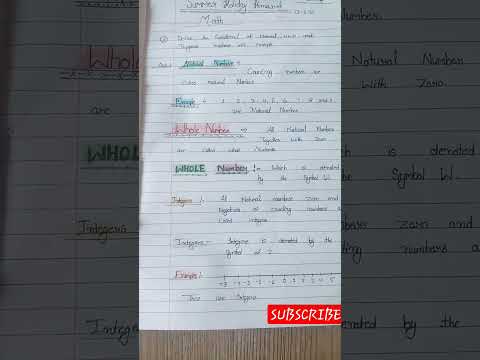 Summer Holiday
Math
Natural Number :
Counting numbers are
called natural Number.
Example : 1 2, 3, 4, 5, 6, 7, 8 and 9
are Natural Number.
Whole Number => All Natural Number
Together with Zero
are called whole Number.
WHOLE Number :- Which is denoted
by the Symbol W.
Integers :- All Natural numbers zero and
Negative of counting numbers are
Integers :- Integer is denoted by the
Symbol of I
Example :
-5 -4 -3 -2 -1 0 1 2 3 4 5
These are Integers
SUBSCRIBE
Number.
Natural Number
with Zero.
are
WHOLE
is denoted
Symbol W.
Integers
numbers zero and
counting numbers a
Integers
denoted by the